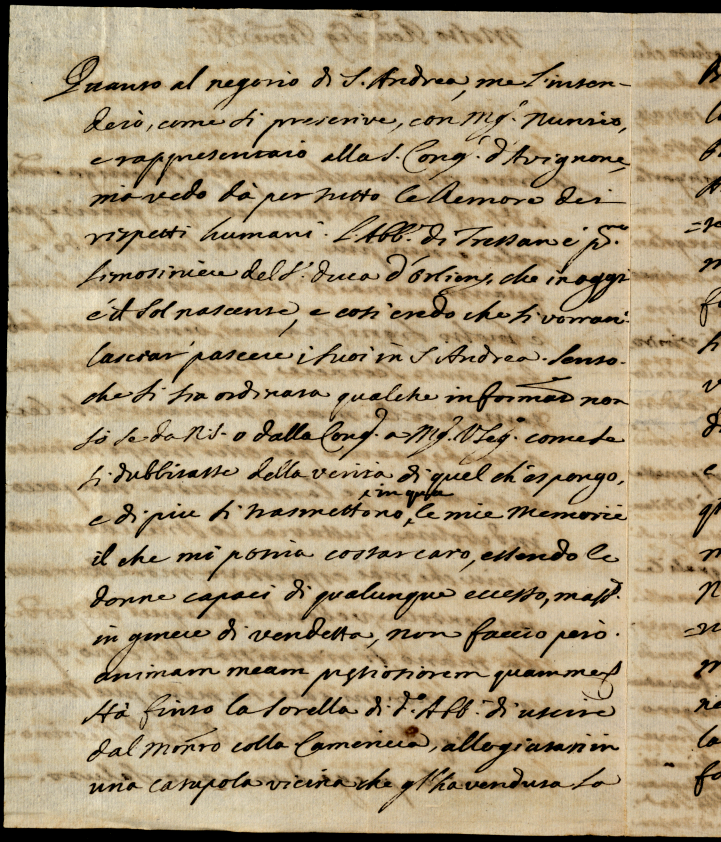 Quanto al negotio di S. Andrea, me l'inten-
derò, come si prescrive, con Mg.r Nunzio,
e rappresentarò alla S. Cong.ne d'Avignone,
mà vedo dà per tutto le Remore dei
rispetti humani. L'Abb.e di Tressan è p.mo
limosiniere del S.r Duca d'Orliens, che in oggi
è il Sol nascente, e così credo che si vorran:
lasciar pascere i suoi in S. Andrea. Sento.
che si sia ordinata qualche informat.ne non
sò se da N.S. o dalla Cong.ne a Mg.r V.Leg.o come se
si dubbitasse della verità di quel ch'espongo,
e di più si trasmettono, le mie Memorie
il che mi potria costar caro, essendo le
donne capaci di qualunque eccesso, mass.e
in genere di vendetta, non faccio però.
animam meam pretiosiorem quam me
Hà finto la sorella di d.o Abb.e di uscire
dal Mon.ro colla Cameriera, allogiatasi in
una casupola vicina che gl'ha venduta la